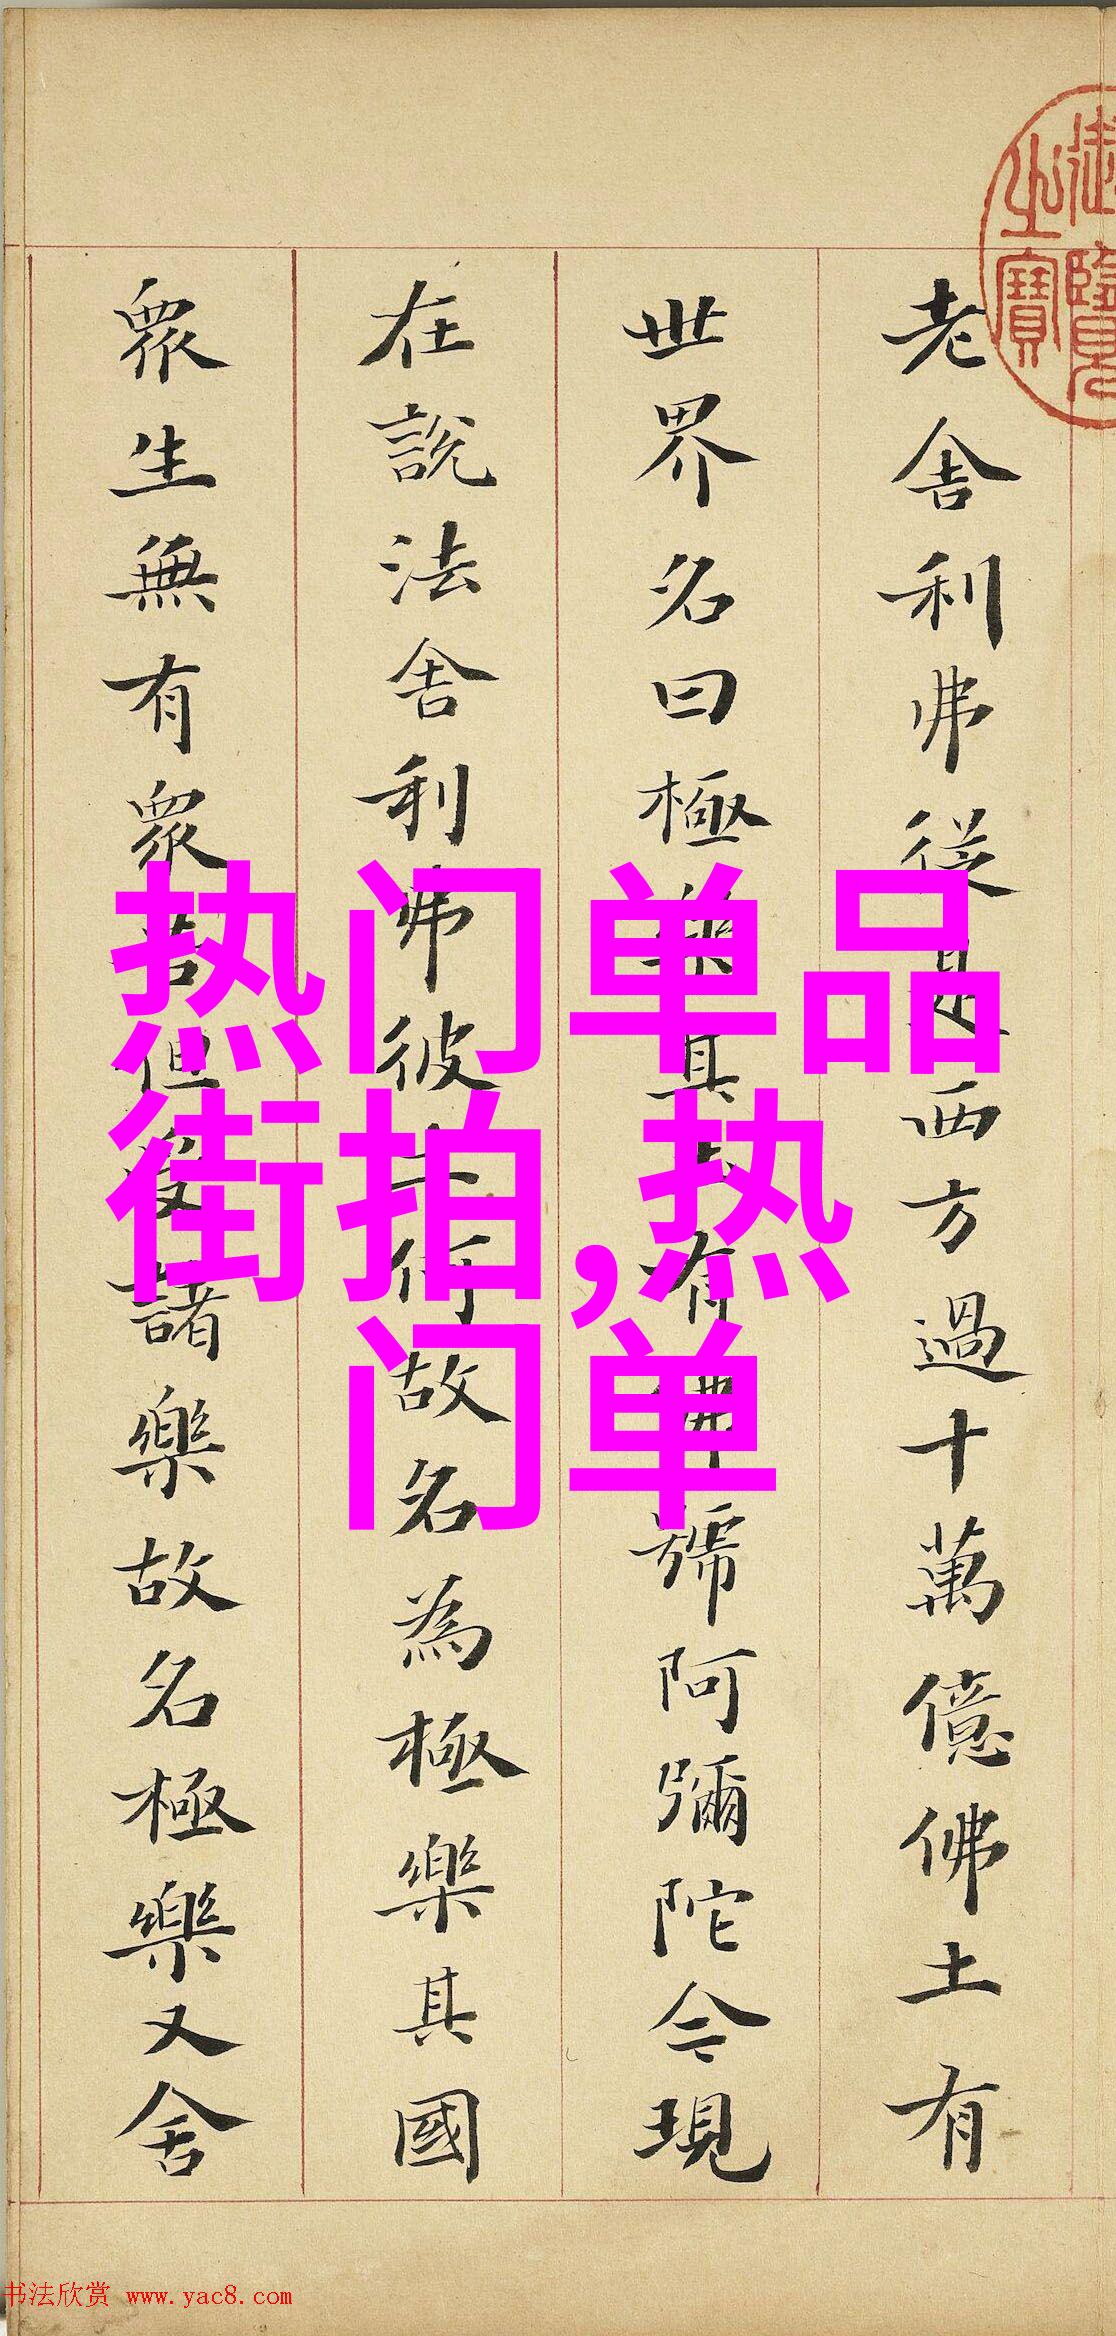 御覽之寶
老舍利弗從是西方過十萬億佛土有
世界名曰極樂其土有佛號阿彌陀今現
在說法舍利弗彼土何故名為極樂其國
眾生無有眾苦但受諸樂故名極樂又舍
热门单品
街拍,热
门单
书法欣赏 www.yac8.com